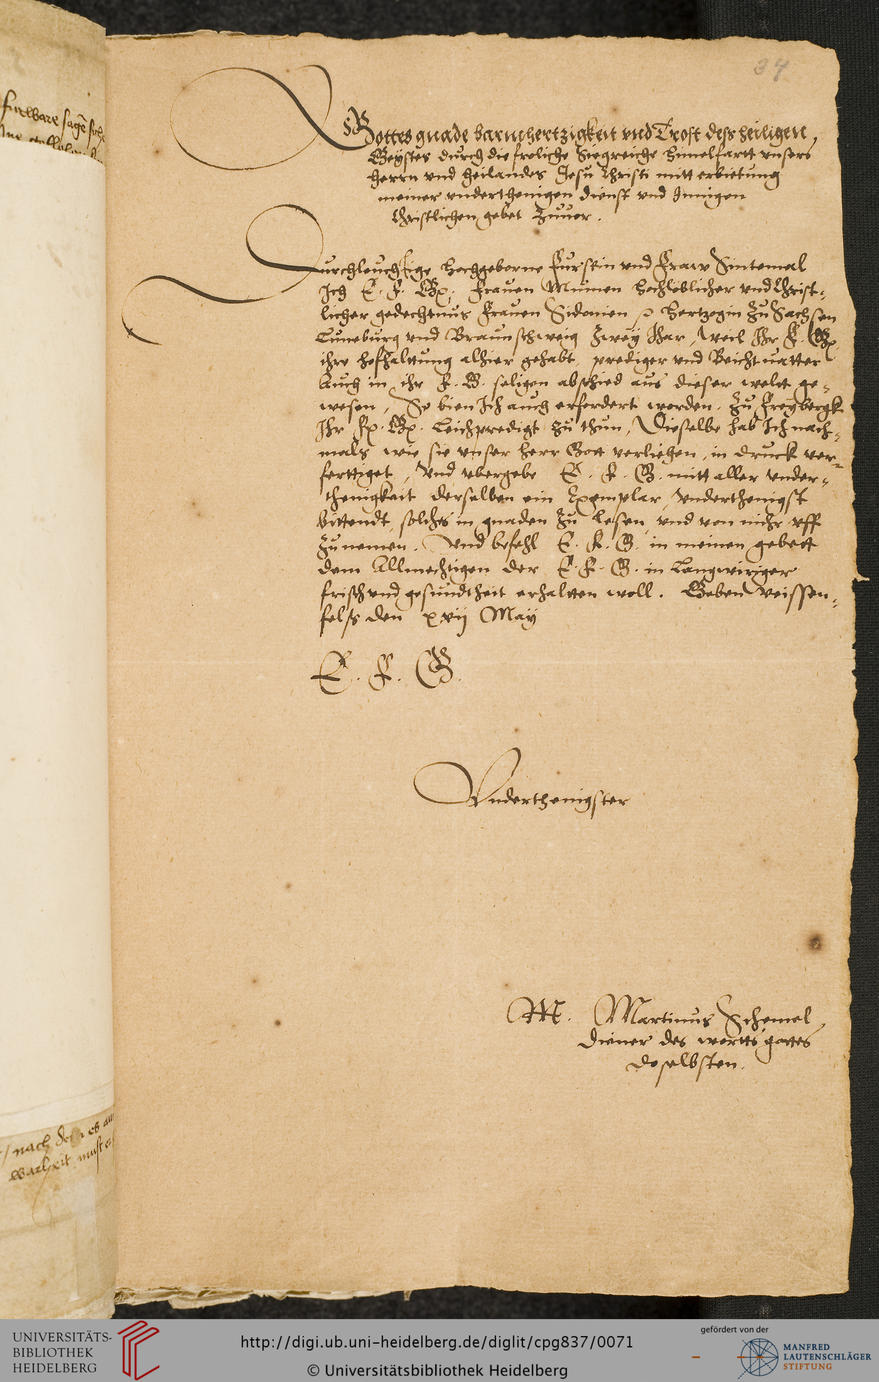 34
Gottes gnade barmhertzigkeit vnd Trost dess heiligen
Geystes durch die froliche Siegreiche himelfartt vnsers
herrn vnd heilandes Jesu Christi mitt erbietung
meiner vnderthenigen dienst vnd Jnnigen
Christlichen gebet Zuuor.
Durchleuchtige hochgeborne Furstin vnd Fraw Sintemal
Jch E. F. G. Frauen Mumen hochloblicher vnd Christ-
licher gedechtnus Frauen Sidonien hertzogin Zu Sachsen
Luneburg vnd Braunschweig Zwey Jhar, weil Jhr F. G.
ihre hofhaltung alhier gehabt, prediger vnd Beichtuatter
Auch in ihr F. G. seligen abschied aus dieser weltt ge-
wesen, So bien Jch auch erfordert worden. Zu Freybergk
Jhr F. G. Leichpredigt zu thun, Dieselbe hab Jch nach-
mals wie sie vnser herr Gott verliehen, in druck ver-
ferttiget, Vnd vbergebe E. F. G. mitt aller vnder-
thenigkeit derselben ein Exemplar, vnderthenigst
bittendt, solchs in gnaden zu lesen vnd von mihr vff
Zunemen. Vnd befehl E. F. G. in meinen gebett
dem Allmechtigen der E. F. G. in Langwiriger
frisch vnd gesundtheit erhaltten woll. Geben Weissen-
felss den xxvij May
E. F. G.
Vnderthenigster
M. Martinus Schemel
diener des wortts gottes
doselbsten.
nach
warheit
UNIVERSITÄTS-
BIBLIOTHEK
HEIDELBERG
http://digi.ub.uni-heidelberg.de/diglit/cpg837/0071
© Universitätsbibliothek Heidelberg
gefördert von der
MANFRED
LAUTENSCHLÄGER
STIFTUNG